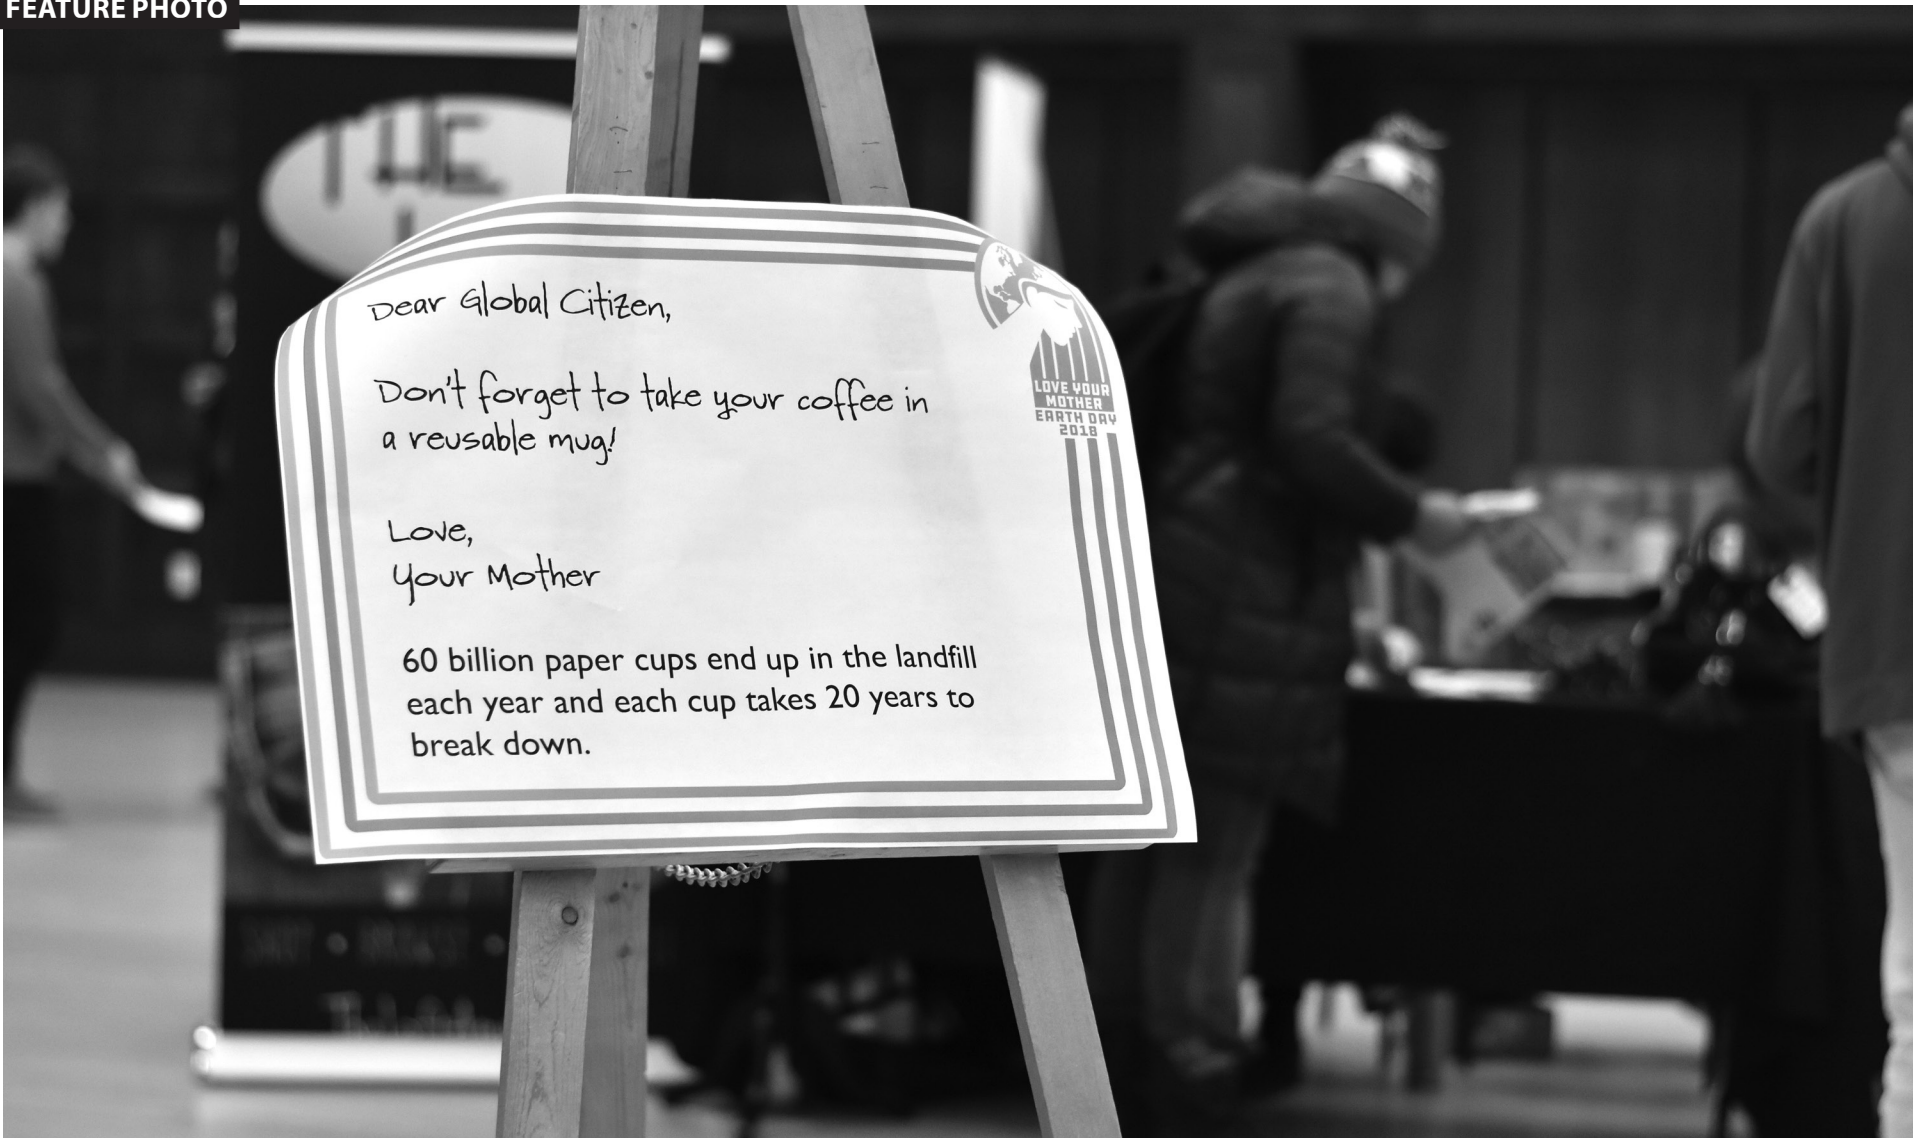 FEATURE PHOTO
THE
Dear Global Citizen,
Don't forget to take your coffee in
a reusable mug!
Love,
Your Mother
60 billion paper cups end up in the landfill
each year and each cup takes 20 years to
break down.
LOVE YOUR
MOTHER
EARTH DAY
2018